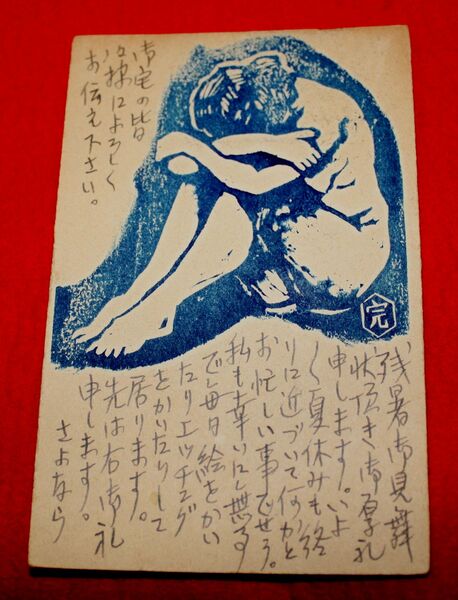 残暑御見舞
状頂き御厚礼
申します。いよ
〱夏休みも終
りに近づいて何かと
お忙しい事でせう。
私も幸いに無事
で毎日絵をかい
たりエッチング
をかいたりして
居ります。
先は右御礼
申します。
さよなら
御宅の皆
々様によろしく
お伝え下さい。
完